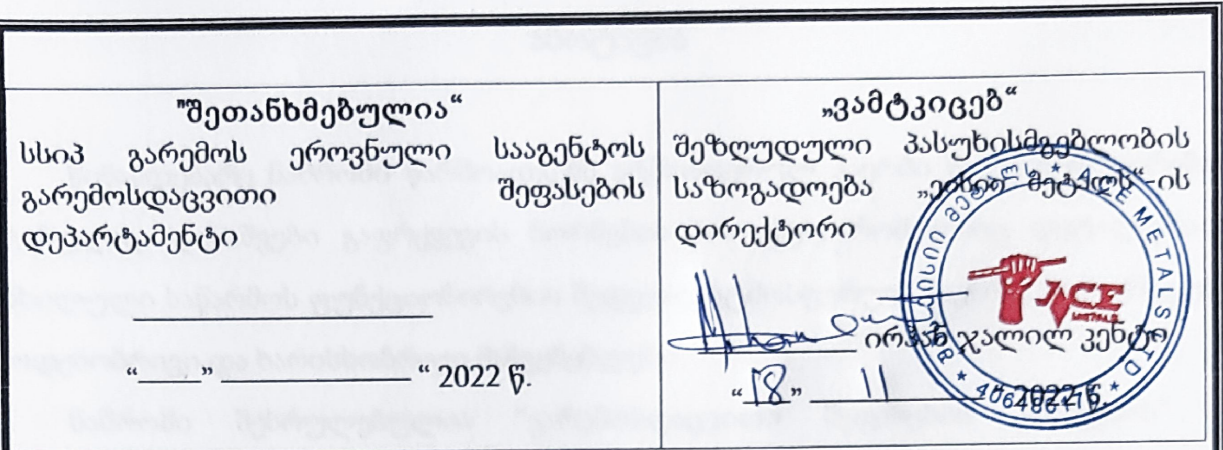 "შეთანხმებულია“
სსიპ გარემოს ეროვნული სააგენტოს
გარემოსდაცვითი შეფასების
დეპარტამენტი
“ ” “ 2022 წ.
„ვამტკიცებ“
შეზღუდული პასუხისმგებლობის
საზოგადოება „ეისია მეტალს“-ის
დირექტორი
ირფან ჯალილ კენტი
“ 18 ” 11 2022 წ.
ACE METALS LTD
ACE
METALS